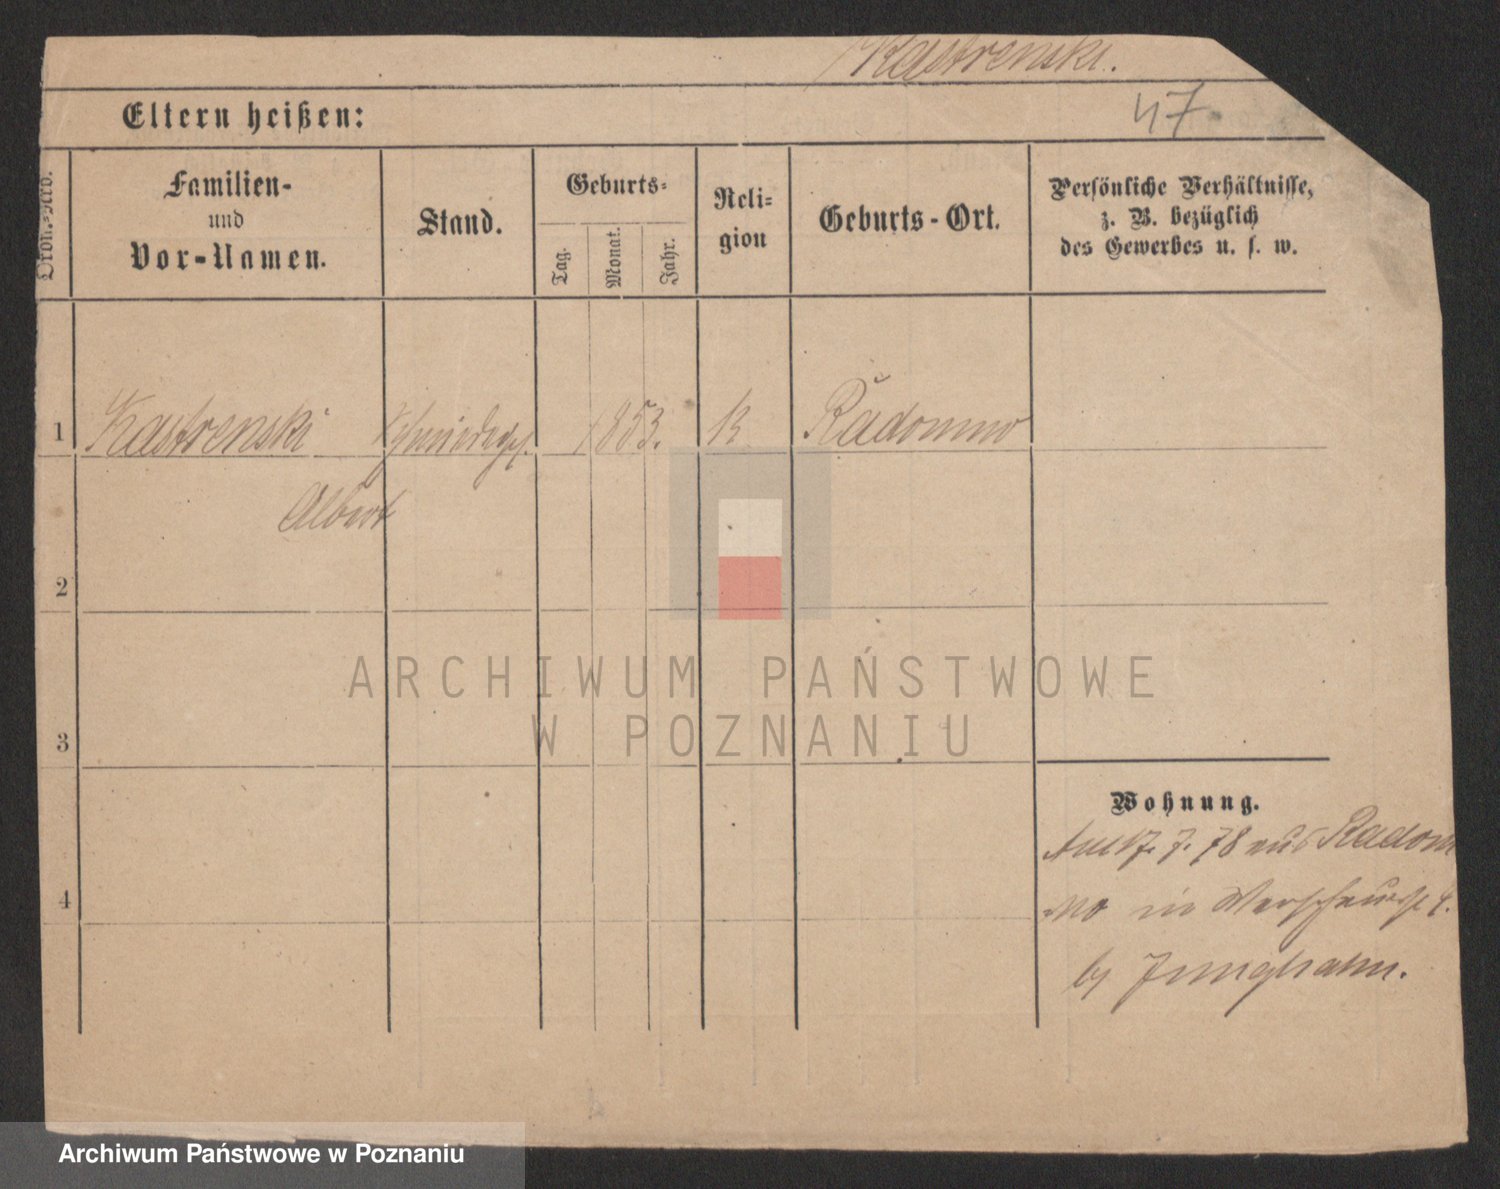 Kastrenski.
47
Eltern heißen:
Ordn.-Nro.
Familien-
und
Vor-Namen.
Stand.
Geburts-
Tag.
Monat.
Jahr.
Reli-
gion
Geburts-Ort.
Persönliche Verhältnisse,
z. B. bezüglich
des Gewerbes u. s. w.
1
Kastrenski
Schmiedeges.
1853.
K
Radomno
Albert
2
3
4
Wohnung.
17. 7. 78 aus Radom
no in
by Junghahn.
ARCHIWUM PAŃSTWOWE
W POZNANIU
Archiwum Państwowe w Poznaniu